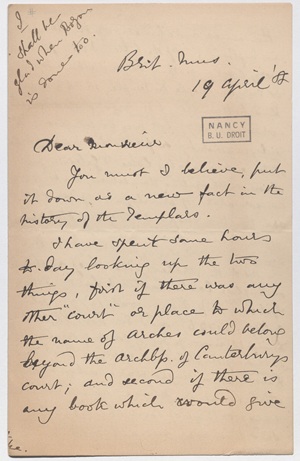 I
shall be
glad when Bogon
is done too.
Brit. Mus.
19 April '8
NANCY
B. U. DROIT
Dear Monsieur
You must I believe, put
it down as a new fact in the
history of the Templars.
I have spent some hours
to-day looking up the two
things, first if there was any
other "court" or place to which
the name of Arches could belong
beyond the Archbp. of Canterburys
court; and second if there is
any book which would give